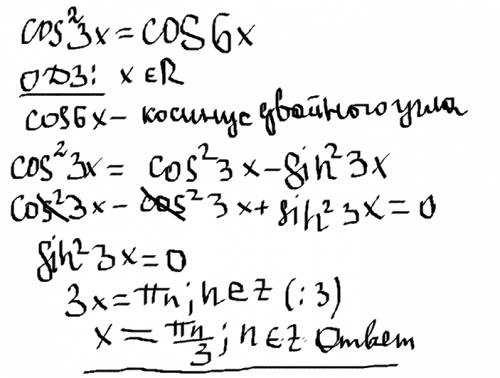 cos²3x = cos6x
ОДЗ: x ∈ R
cos6x – косинус двойного угла
cos²3x = cos²3x – sin²3x
cos²3x – cos²3x + sin²3x = 0
sin²3x = 0
3x = πn; n ∈ z (:3)
x = πn/3; n ∈ z Ответ